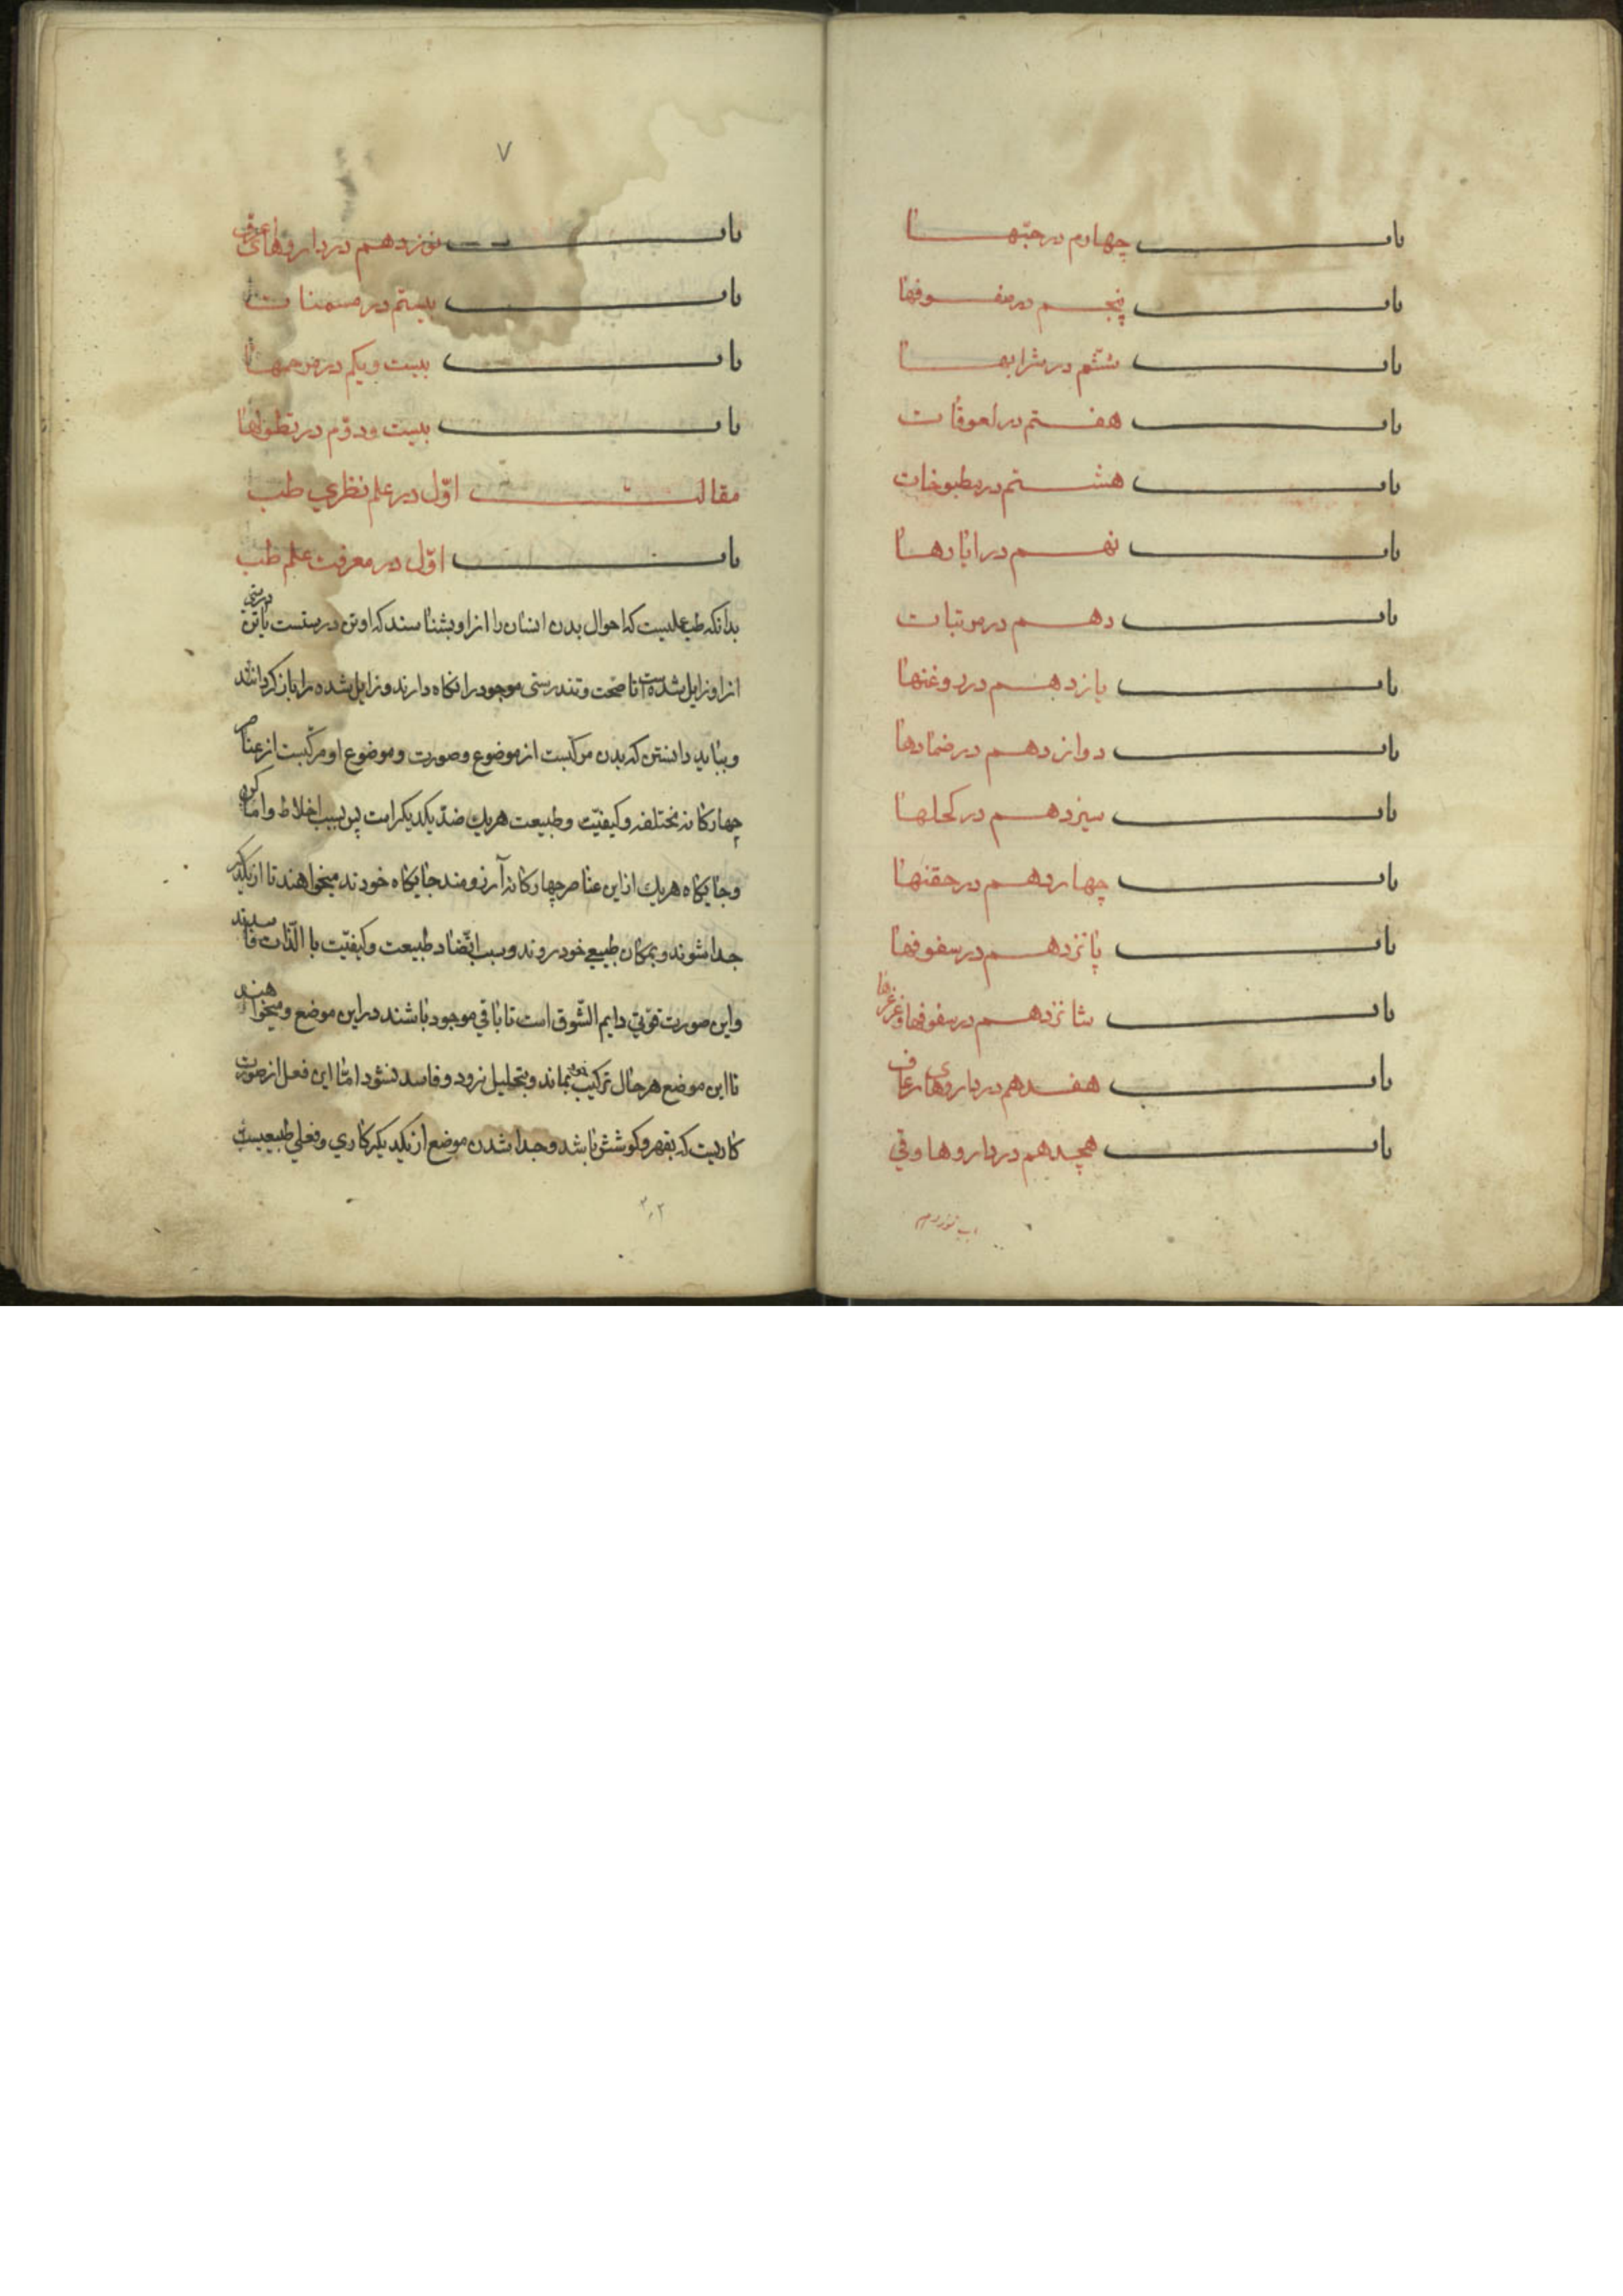 باب چهارم در حبّها
باب پنجم در سفوفها
باب ششم در شرابها
باب هفتم در لعوقات
باب هشتم در مطبوخات
باب نهم در ایارها
باب دهم در مرتبات
باب یازدهم در روغنها
باب دوازدهم در ضمادها
باب سیزدهم در کحلها
باب چهاردهم در حقنها
باب پانزدهم در سفوفها
باب شانزدهم در سفوفها و غرغرها
باب هفدهم در داروهای رعاف
باب هجدهم در داروها وقی
۷
باب نوزدهم در داروهای عرق
باب بیستم در مسمنات
باب بیست ویکم در مرهمها
باب بیست ودوّم در نطولها
مقالت اوّل در علم نظری طب
باب اوّل در معرفت علم طب
بدانکه طب علمیست که احوال بدن انسان را ازاو بشناسند که او تن درستست یا تن درستی
ازاو زایل شده است تا صحّت و تندرستی موجود را نکاه دارند و زایل شده را باز کردانند
و بباید دانستن که بدن مرکبست از موضوع و صورت و موضوع او مرکّبست از عناصر
چهارکانه مختلفه و کیفیّت و طبیعت هریك ضدّ یکدیکر است پس بسبب اخلاط و اماکن
و جایکاه هریك ازاین عناصر چهارکانه آرزومند جایکاه خودند میخواهند تا ازیکدیکر
جدا شوند و بمکان طبیعی خود روند و بسبب اتّضاد طبیعت و کیفیّت با الذّات فاسدند
واین صورت قوّتی دایم الشّوق است تا باقی موجود باشند دراین موضع و میخواهند
تا این موضع هرحال ترکیب خود بماند و بتحلیل نرود و فاسد نشود امّا این فعل از صورت
کاریست که بقهر و کوشش باشد و جدا شدن موضع ازیکدیکر کاری و فعلی طبیعیست